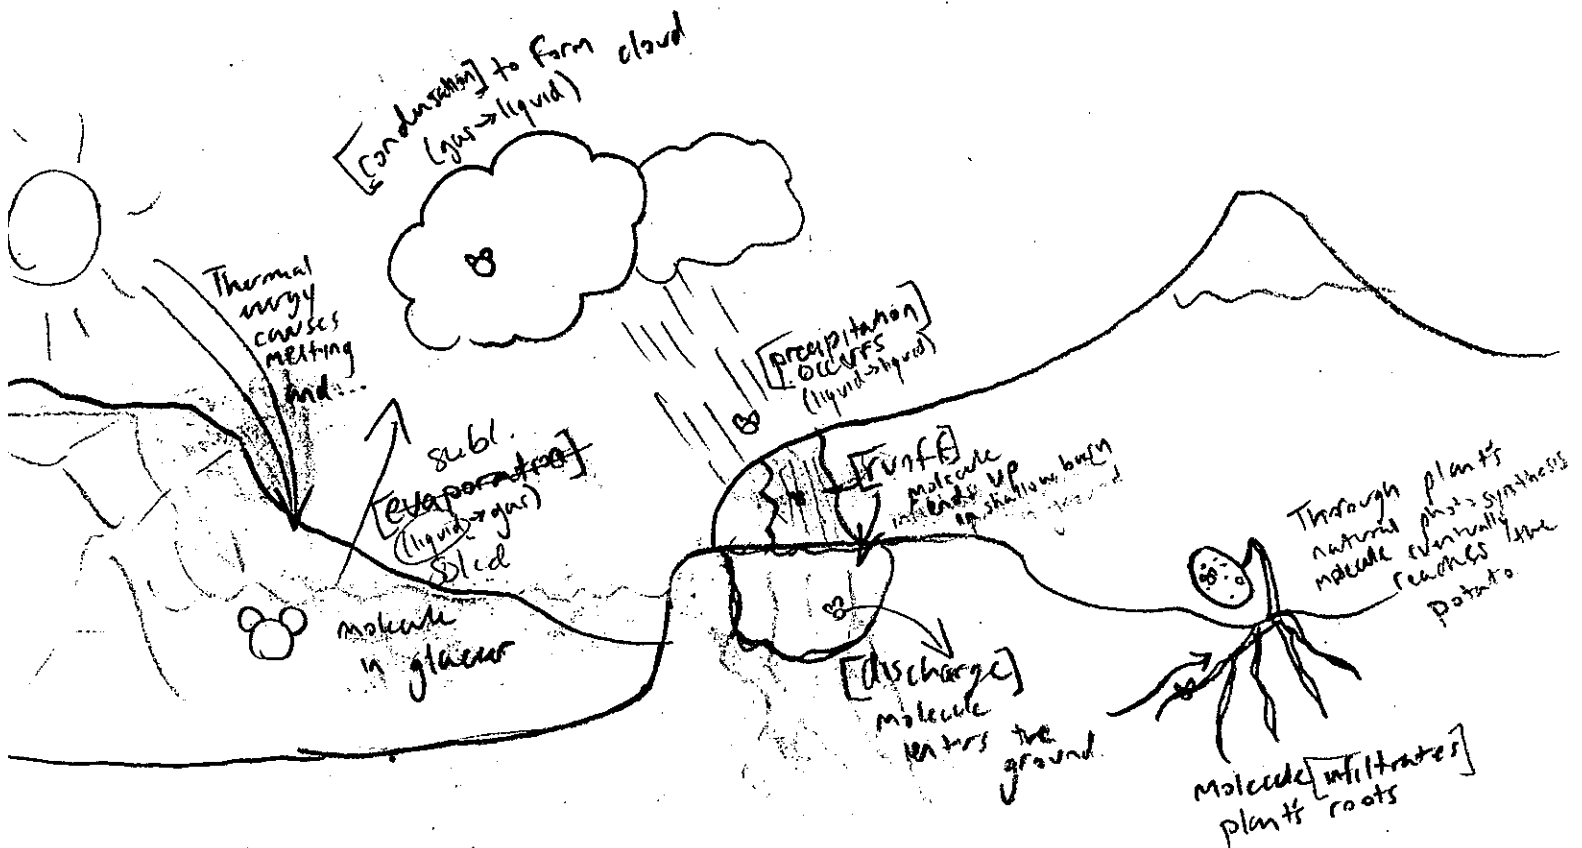 [condensation] to form cloud
(gas→liquid)
Thermal
energy
causes
melting
and...
subl.
[evaporation]
(liquid→gas)
solid
molecule
in glacier
[precipitation]
occurs
(liquid→liquid)
[runoff]
molecule
ends up
in shallow basin
[discharge]
molecule
enters the
ground.
Thorough plant's
natural photosynthesis
molecule eventually
reaches the
potato
molecule [infiltrates]
plant's roots